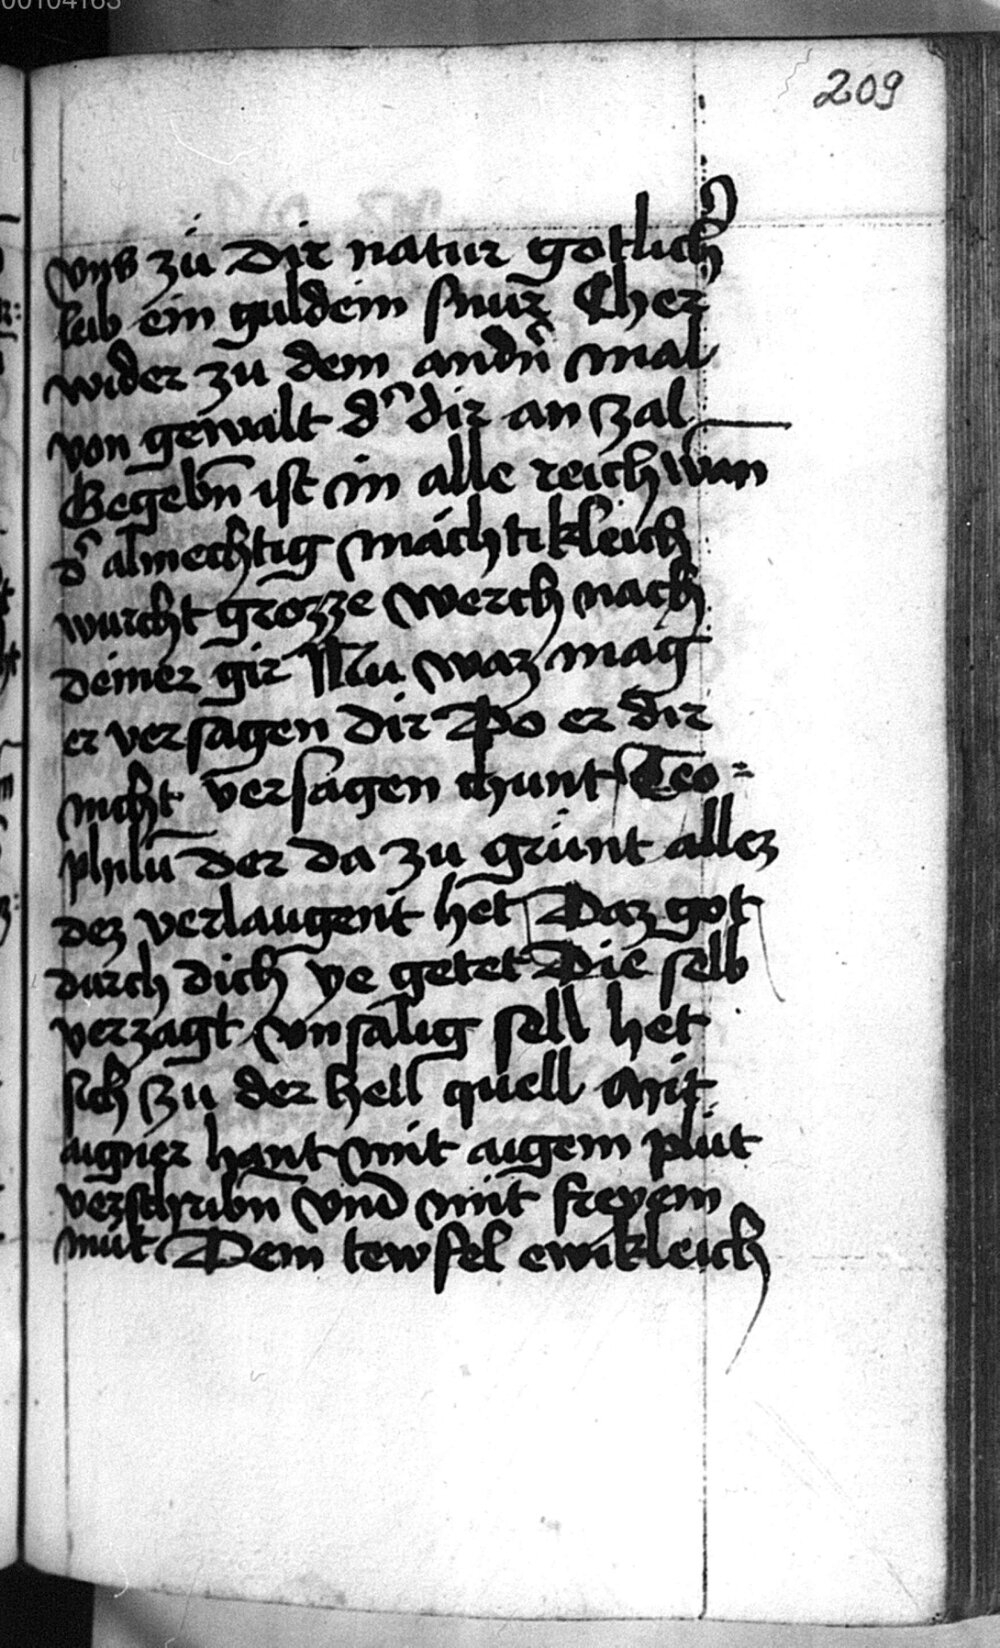 00104163
209
vns zu dir natur gotlich͛
leib ein guldein snur Cher
wider zu dem andn̄ mal
von gewalt d͛ dir an zal
Gegebn̄ ist in alle reich wan
d͛ almechtig mächtikleich
wurcht grozze werch nach
deiner gir Nu waz mag
er versagen dir Do er dir
nicht versagen chunt Teo=
philū der da zu grunt allez
dez verlaugent het Daz got
durch dich ye getet Die selb
verzagt vnsälig sell het
sich zu der hell quell Mit
aigner hant mit aigem plut
verschribn̄ vnd mit freyem
mut Dem tewfel ewikleich